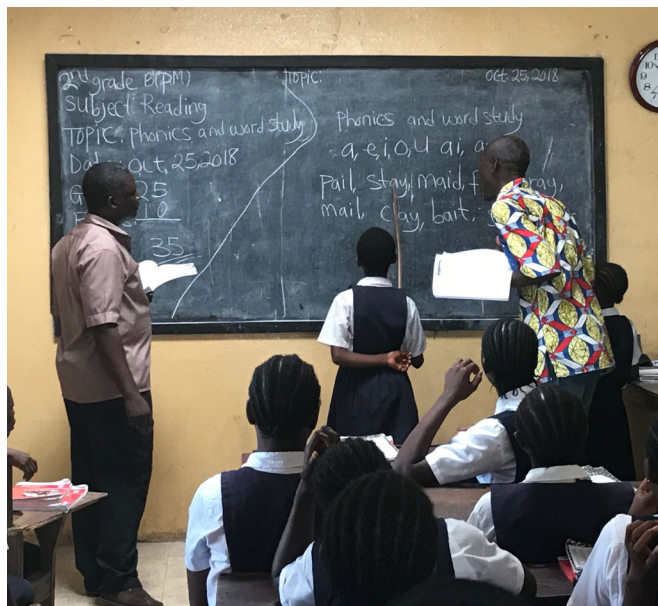 2nd grade B(PM)
Subject: Reading
Topic: Phonics and word study
Date: Oct. 25, 2018
G 25
10
35
Topic:
Oct. 25, 2018
Phonics and word study
a, e, i, o, u ai, a
Pail, stay, maid, f ray,
mail, clay, bait,
10
9
8
7